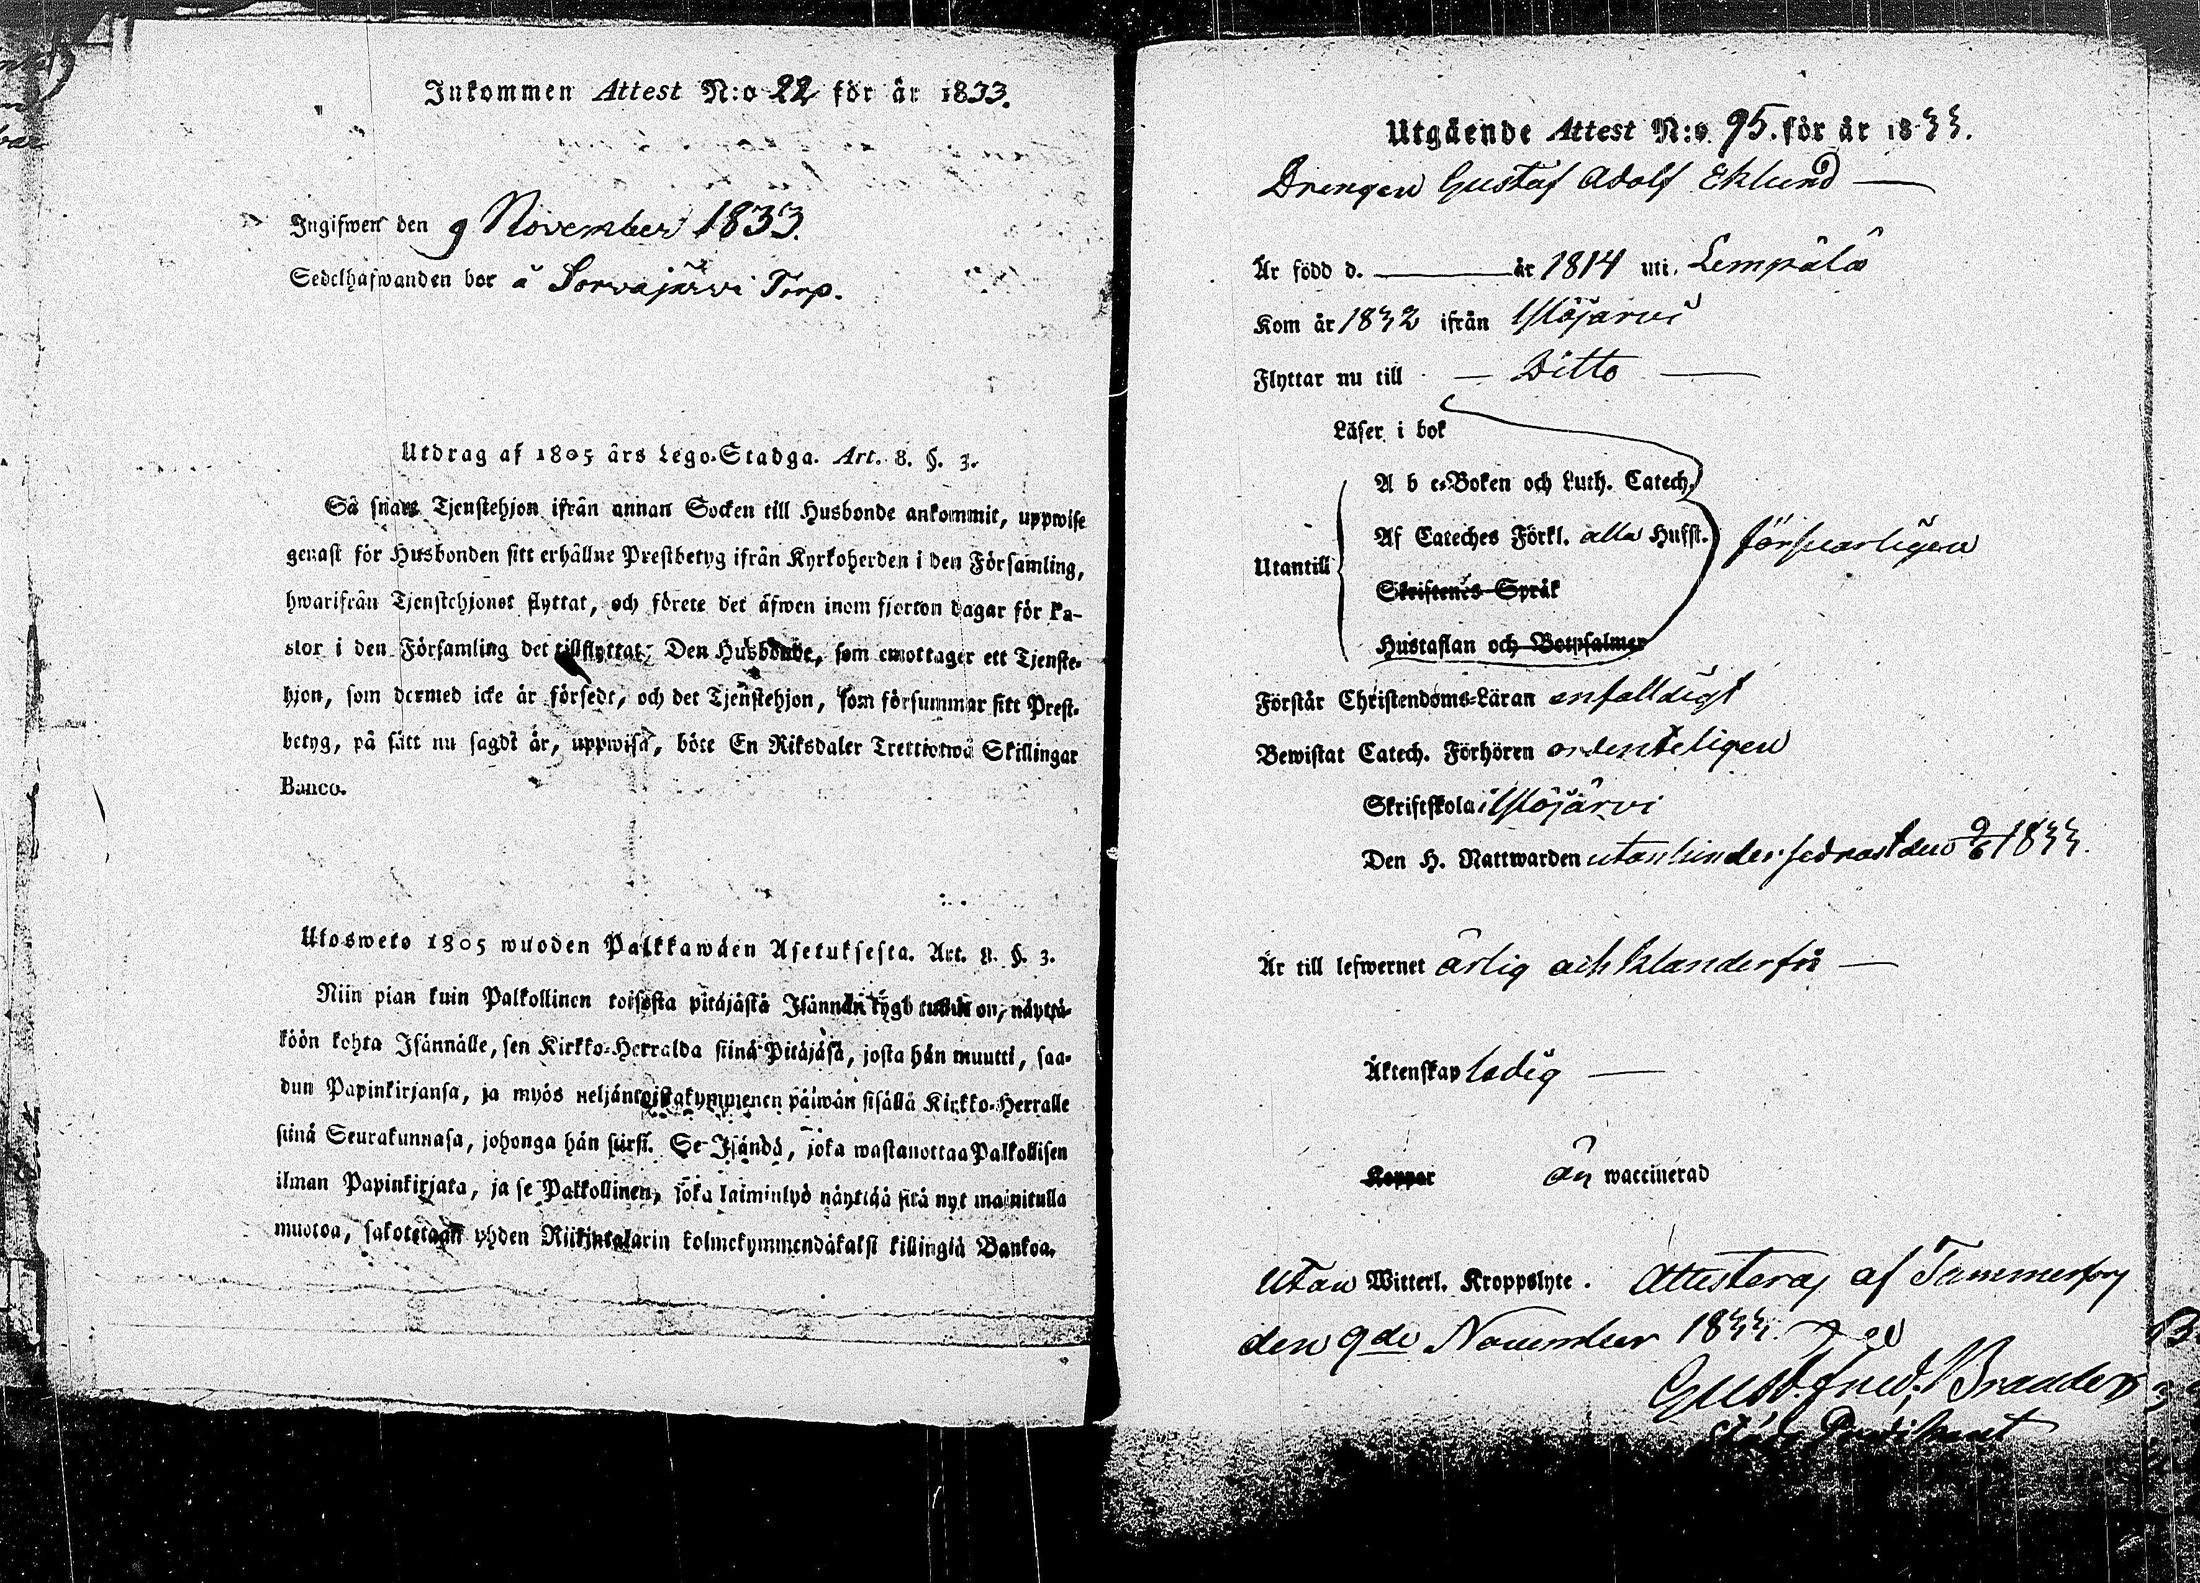 Inkommen Attest N:o 22 för år 1833.
Ingifwen den 9 November 1833.
Sedelhafwanden bor å Sorvajärvi Torp.
Utdrag af 1805 års Lego-Stadga. Art. 8. §. 3.
Så snart Tjenstehjon ifrån annan Socken till Husbonde ankommit, uppwise
genast för Husbonden sitt erhållne Prestbetyg ifrån Kyrkoherden i den Församling,
hwarifrån Tjenstehjonet flyttat, och förete det äfwen inom fjorton dagar för Pa-
stor i den Församling det tillflyttat; Den Husbonde, som emottager ett Tjenste-
hjon, som dermed icke är försedt, och det Tjenstehjon, som försummar sitt Prest-
betyg, på sätt nu sagdt är, uppwisa, böte En Riksdaler Trettiotwå Skillingar
Banco.
Ulosweto 1805 wuoden Palkkawäen Asetuksesta. Art. 8. §. 3.
Niin pian kuin Palkollinen toisesta pitäjästä Isännän tygö tullut on, näyttä-
köön kohta Isännälle, sen Kirkko-Herralda siinä Pitäjäsä, josta hän muutti, saa-
dun Papinkirjansa, ja myös neljäntoistakymmenen päiwän sisällä Kirkko-Herralle
siinä Seurakunnasa, johonga hän siirsi. Se Isändä, joka wastanottaa Palkollisen
ilman Papinkirjata, ja se Palkollinen, joka laiminlyö näyttää sitä nyt mainitulla
muotoa, sakotetaan yhden Riikintalarin kolmekymmendäkaksi killingiä Bankoa.
Utgående Attest N:o 95. för år 1833.
Drengen Gustaf Adolf Eklund
Är född d. år 1814 uti Lempälä
Kom år 1832 ifrån Ylöjärvi
Flyttar nu till Ditto
Läser i bok
A b c-Boken och Luth. Catech.
Af Cateches Förkl. alla Husst. försvarligen
Utantill
Skriftenes Språk
Hustaflan och Botpsalmer
Förstår Christendoms-Läran enfalldigt
Bewistat Catech. Förhören ordenteligen
Skriftskola i Ylöjärvi
Den H. Nattwarden utan hinder sednast den 9/6 1833.
Är till lefwernet ärlig och klanderfri
Äktenskap ledig
Koppor än waccinerad
Utan Witterl. Kroppslyte. Attesteras af Tammerfors
den 9de November 1833.
Gust. Fried. Brander
Predikant